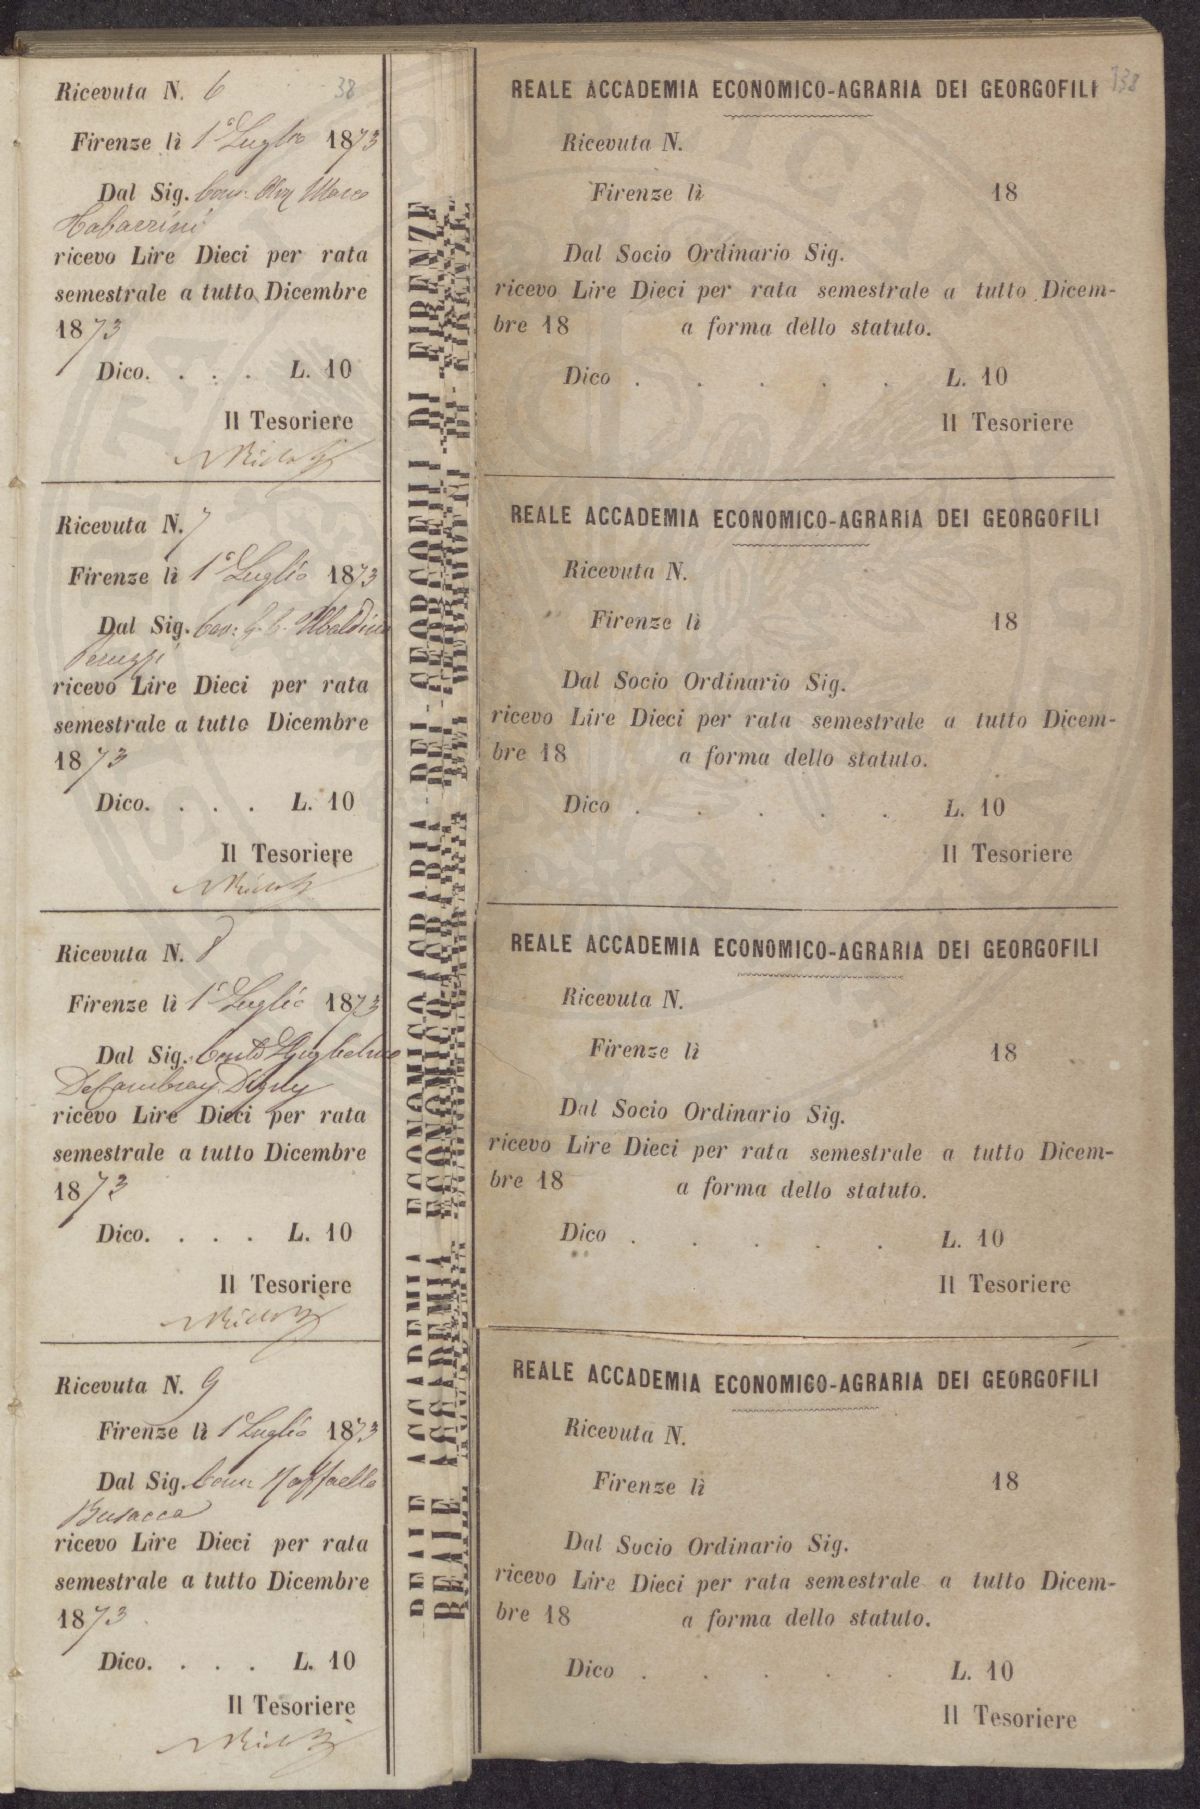 Ricevuta N. 6
38
Firenze lì 1° Luglio 1873
Dal Sig. Marco
Tabarrini
ricevo Lire Dieci per rata
semestrale a tutto Dicembre
1873
Dico. . . . L. 10
Il Tesoriere
Ricevuta N. 7
Firenze lì 1° Luglio 1873
Dal Sig. Ubaldino
Peruzzi
ricevo Lire Dieci per rata
semestrale a tutto Dicembre
1873
Dico. . . . L. 10
Il Tesoriere
Ricevuta N. 8
Firenze lì 1° Luglio 1873
Dal Sig. Conte Guglielmo
De Cambray Digny
ricevo Lire Dieci per rata
semestrale a tutto Dicembre
1873
Dico. . . . L. 10
Il Tesoriere
Ricevuta N. 9
Firenze lì 1° Luglio 1873
Dal Sig. Raffaello
Busacca
ricevo Lire Dieci per rata
semestrale a tutto Dicembre
1873
Dico. . . . L. 10
Il Tesoriere
REALE ACCADEMIA ECONOMICO-AGRARIA DEI GEORGOFILI DI FIRENZE
138
REALE ACCADEMIA ECONOMICO-AGRARIA DEI GEORGOFILI
Ricevuta N.
Firenze lì 18
Dal Socio Ordinario Sig.
ricevo Lire Dieci per rata semestrale a tutto Dicem-
bre 18 a forma dello statuto.
Dico . . . . . L. 10
Il Tesoriere
REALE ACCADEMIA ECONOMICO-AGRARIA DEI GEORGOFILI
Ricevuta N.
Firenze lì 18
Dal Socio Ordinario Sig.
ricevo Lire Dieci per rata semestrale a tutto Dicem-
bre 18 a forma dello statuto.
Dico . . . . . L. 10
Il Tesoriere
REALE ACCADEMIA ECONOMICO-AGRARIA DEI GEORGOFILI
Ricevuta N.
Firenze lì 18
Dal Socio Ordinario Sig.
ricevo Lire Dieci per rata semestrale a tutto Dicem-
bre 18 a forma dello statuto.
Dico . . . . . L. 10
Il Tesoriere
REALE ACCADEMIA ECONOMICO-AGRARIA DEI GEORGOFILI
Ricevuta N.
Firenze lì 18
Dal Socio Ordinario Sig.
ricevo Lire Dieci per rata semestrale a tutto Dicem-
bre 18 a forma dello statuto.
Dico . . . . . L. 10
Il Tesoriere